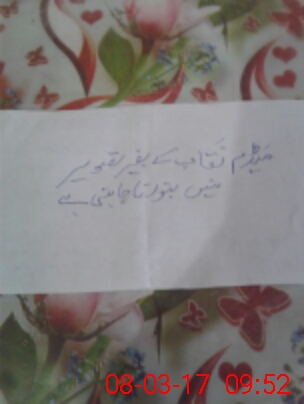 میڈم نقاب کے بغیر تصویر
نہیں بنوانا چاہتی ہے
08-03-17 09:52